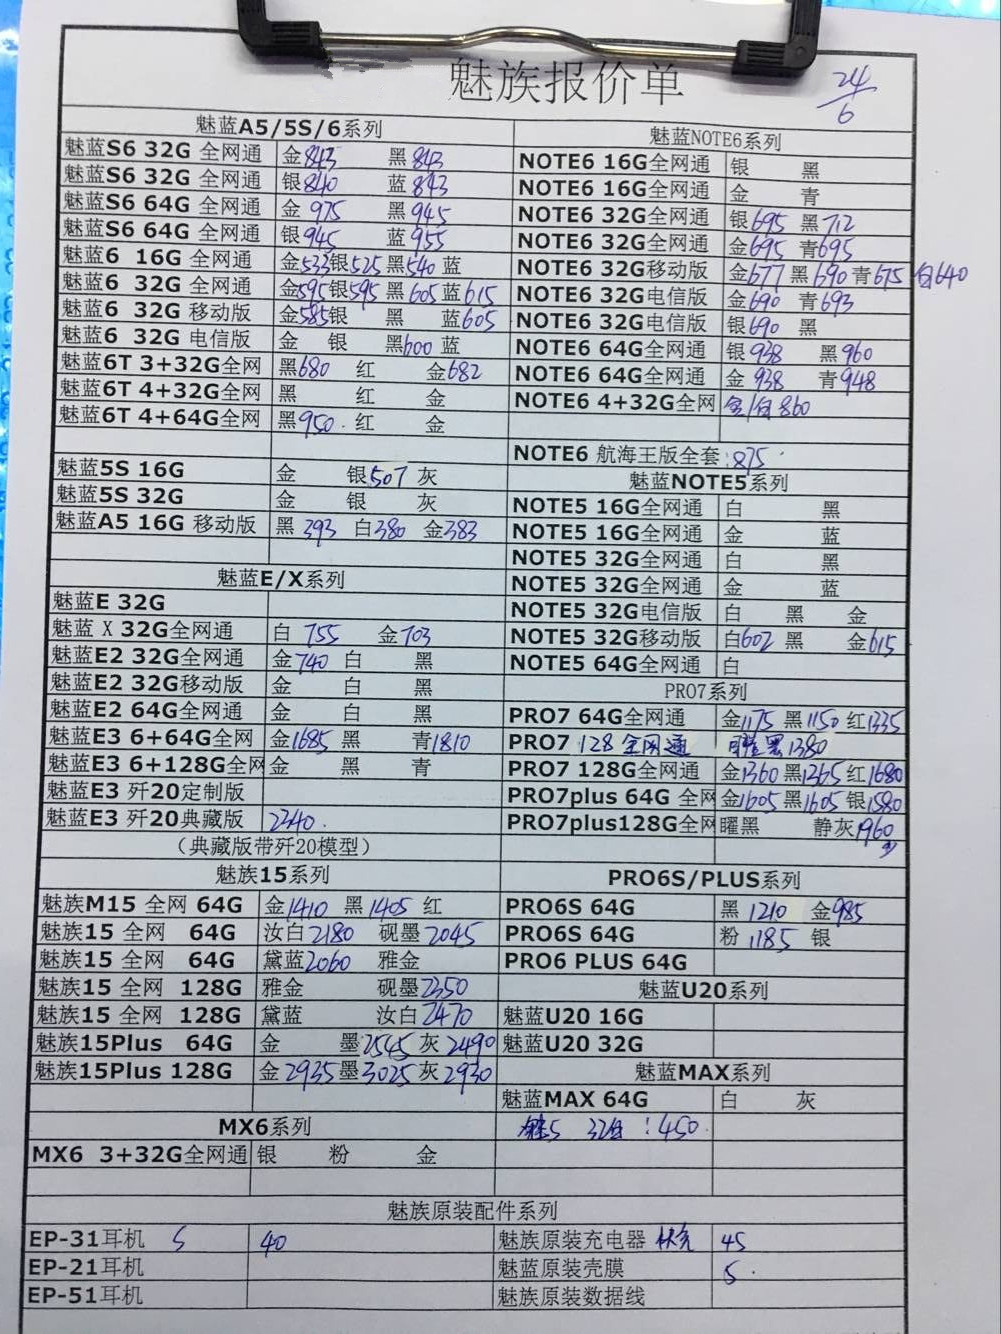 魅族报价单
24/6
魅蓝A5/5S/6系列
魅蓝S6 32G 全网通 金843 黑843
魅蓝S6 32G 全网通 银840 蓝843
魅蓝S6 64G 全网通 金975 黑945
魅蓝S6 64G 全网通 银945 蓝955
魅蓝6 16G 全网通 金533银525黑540 蓝
魅蓝6 32G 全网通 金595银595 黑605蓝615
魅蓝6 32G 移动版 金585银 黑 蓝605
魅蓝6 32G 电信版 金 银 黑600 蓝
魅蓝6T 3+32G全网 黑680 红 金682
魅蓝6T 4+32G全网 黑 红 金
魅蓝6T 4+64G全网 黑950. 红 金
魅蓝5S 16G 金 银507 灰
魅蓝5S 32G 金 银 灰
魅蓝A5 16G 移动版 黑 393 白380 金383
魅蓝E/X系列
魅蓝E 32G
魅蓝 X 32G全网通 白 755 金703
魅蓝E2 32G全网通 金740 白 黑
魅蓝E2 32G移动版 金 白 黑
魅蓝E2 64G全网通 金 白 黑
魅蓝E3 6+64G全网 金1685 黑 青1810
魅蓝E3 6+128G全网 金 黑 青
魅蓝E3 歼20定制版
魅蓝E3 歼20典藏版 2240.
（典藏版带歼20模型）
魅族15系列
魅族M15 全网 64G 金1410 黑1405 红
魅族15 全网 64G 汝白2180 砚墨2045
魅族15 全网 64G 黛蓝2060 雅金
魅族15 全网 128G 雅金 砚墨2350
魅族15 全网 128G 黛蓝 汝白2470
魅族15Plus 64G 金 墨2545 灰2490
魅族15Plus 128G 金2935墨3025灰2930
MX6系列
MX6 3+32G全网通 银 粉 金
魅蓝NOTE6系列
NOTE6 16G全网通 银 黑
NOTE6 16G全网通 金 青
NOTE6 32G全网通 银695 黑712
NOTE6 32G全网通 金695 青695
NOTE6 32G移动版 金677黑690青675 白640
NOTE6 32G电信版 金690 青693
NOTE6 32G电信版 银690 黑
NOTE6 64G全网通 银938 黑960
NOTE6 64G全网通 金938 青948
NOTE6 4+32G全网 金/白 860
NOTE6 航海王版全套:875
魅蓝NOTE5系列
NOTE5 16G全网通 白 黑
NOTE5 16G全网通 金 蓝
NOTE5 32G全网通 白 黑
NOTE5 32G全网通 金 蓝
NOTE5 32G电信版 白 黑 金
NOTE5 32G移动版 白602 黑 金615
NOTE5 64G全网通 白
PRO7系列
PRO7 64G全网通 金1175 黑1150 红1335
PRO7 128全网通 曜黑1380
PRO7 128G全网通 金1360黑1365红1680
PRO7plus 64G 全网 金1605黑1605 银1580
PRO7plus128G全网 曜黑 静灰1960
PRO6S/PLUS系列
PRO6S 64G 黑 1210 金985
PRO6S 64G 粉 1185 银
PRO6 PLUS 64G
魅蓝U20系列
魅蓝U20 16G
魅蓝U20 32G
魅蓝MAX系列
魅蓝MAX 64G 白 灰
450
魅族原装配件系列
EP-31耳机 S 40
EP-21耳机
EP-51耳机
魅族原装充电器 快充 45
魅蓝原装壳膜 5.
魅族原装数据线